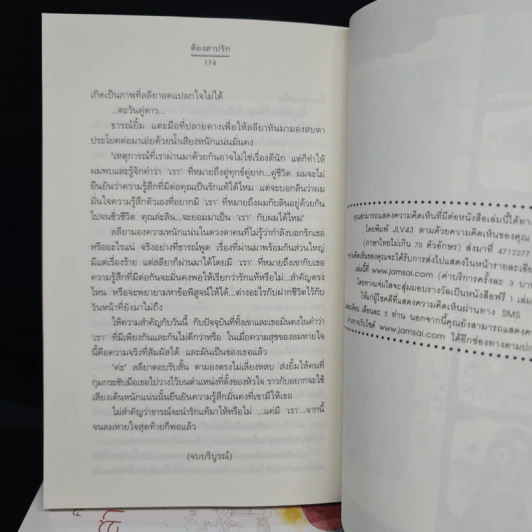 ต้องสาปรัก
174
เกิดเป็นภาพที่ลลียาอดแปลกใจไม่ได้
...ตะวันคู่ดาว...
ธารณ์ยิ้ม แตะมือที่ปลายคางเพื่อให้ลลียาหันมามองสบตา
ประโยคต่อมาเอ่ยด้วยน้ำเสียงหนักแน่นมั่นคง
"เหตุการณ์ที่เราผ่านมาด้วยกันอาจไม่ใช่เรื่องดีนัก แต่ก็ทำให้
ผมพบและรู้จักคำว่า 'เรา' ที่หมายถึงคู่ทุกข์คู่ยาก...คู่ชีวิต ผมจะไม่
ยืนยันว่าความรู้สึกที่มีต่อคุณเป็นรักแท้ได้ไหม แต่จะบอกลินว่าผม
มั่นใจความรู้สึกตัวเองที่อยากมี 'เรา' ที่หมายถึงผมกับลินอยู่ด้วยกัน
ไปจนชั่วชีวิต คุณล่ะลิน...จะยอมมาเป็น 'เรา' กับผมได้ไหม"
ลลียามองความหนักแน่นในดวงตาคนที่ไม่รู้ว่ากำลังบอกรักเธอ
หรืออะไรแน่ จริงอย่างที่ธารณ์พูด เรื่องที่ผ่านมาพร้อมกันส่วนใหญ่
มีแต่เรื่องร้าย แต่ลลียาก็ผ่านมาได้โดยมี 'เรา' ที่หมายถึงเขากับเธอ
ความรู้สึกที่มีต่อกันจะมั่นคงพอให้เรียกว่ารักแท้หรือไม่...สำคัญตรง
ไหน หรือจะพยายามหาข้อพิสูจน์ให้ได้...ต่างอะไรกับฝากชีวิตไว้กับ
วันหน้าที่ยังมาไม่ถึง
ให้ความสำคัญกับวันนี้ กับปัจจุบันที่ทั้งเขาและเธอมั่นคงในคำว่า
'เรา' ที่มีเพียงกันและกันไม่ดีกว่าหรือ ในเมื่อความสุขของลมหายใจ
นี้คือความจริงที่สัมผัสได้ และมันเป็นของเธอแล้ว
"ค่ะ" ลลียาตอบรับสั้น ตามองตรงไม่เลี่ยงหลบ ส่งยิ้มให้คนที่
กุมกระชับมือเธอไปวางไว้บนตำแหน่งที่ตั้งของหัวใจ ราวกับอยากจะใช้
เสียงเต้นหนักแน่นนั้นยืนยันความรู้สึกมั่นคงที่เขามีให้เธอ
ไม่สำคัญว่าธารณ์จะนำรักแท้มาให้หรือไม่ ...แค่มี 'เรา'...จากนี้
จนลมหายใจสุดท้ายก็พอแล้ว
(จบบริบูรณ์)
คุณสามารถแสดงความคิดเห็นที่มีต่อหนังสือเล่มนี้ได้ทาง
โดยพิมพ์ JLV43 ตามด้วยความคิดเห็นของคุณ
(ภาษาไทยไม่เกิน 70 ตัวอักษร) ส่งมาที่ 4712277
ความคิดเห็นของคุณจะได้รับการส่งไปแสดงในหน้ารายละเอียด
เล่มนี้ที่ www.jamsai.com (ค่าบริการครั้งละ 3 บาท
โดยทางแจ่มใสจะสุ่มมอบรางวัลเป็นหนังสือฟรี 1 เล่ม
ให้แก่ผู้โชคดีที่แสดงความคิดเห็นผ่านทาง SMS
เดือนละ 5 ท่าน นอกจากนี้คุณยังสามารถแสดงค
เว็บไซต์ www.jamsai.com ได้อีกช่องทางตามปก